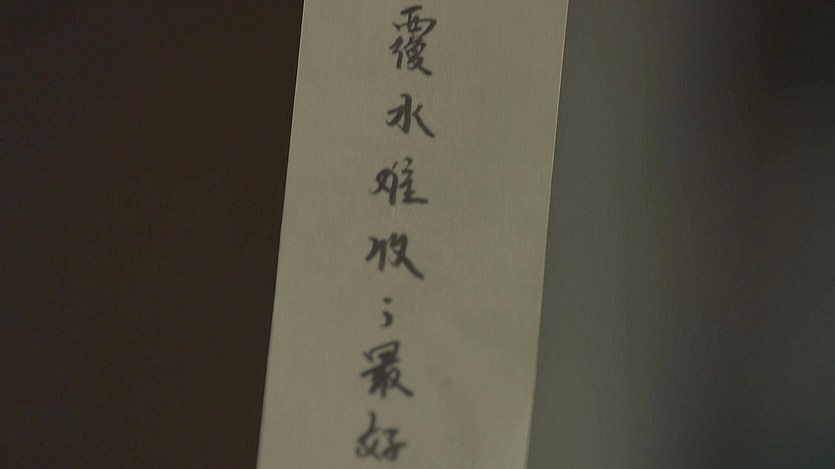 覆水难收；最好